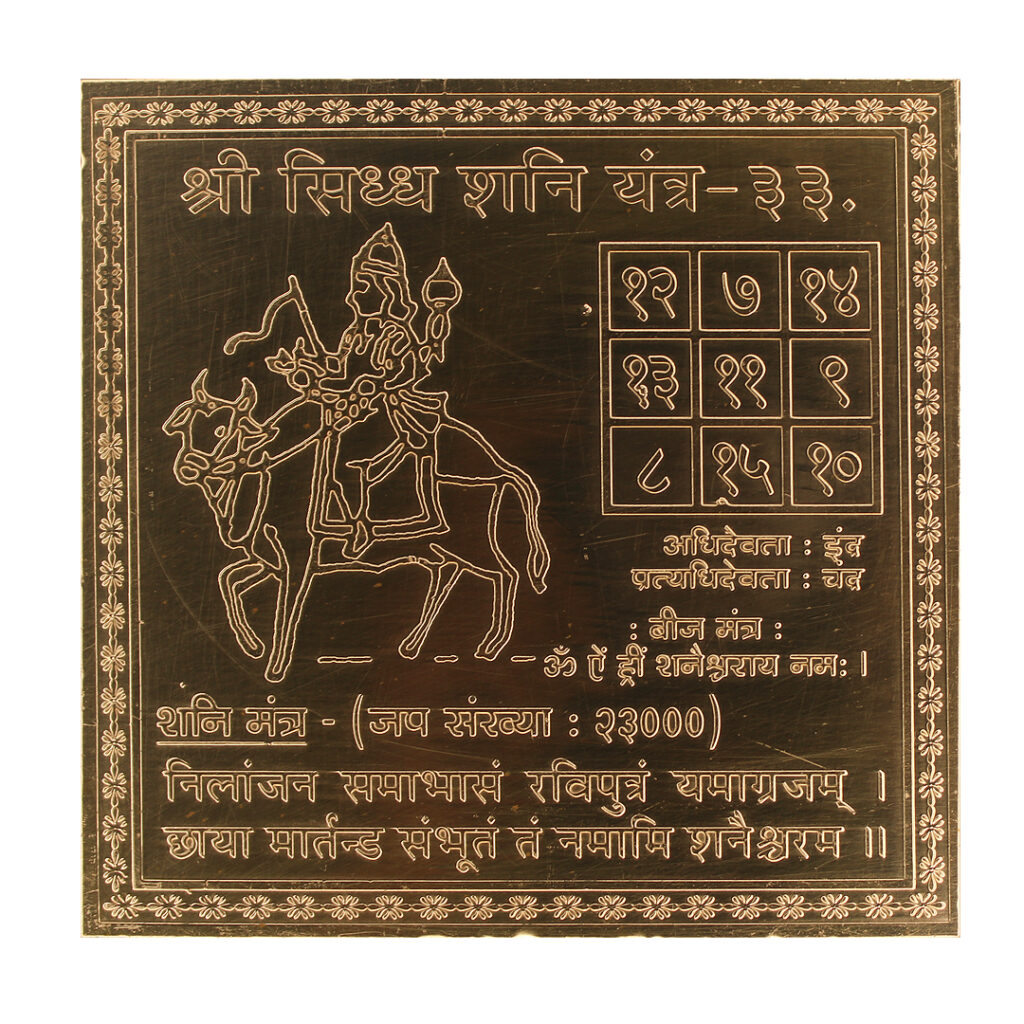 श्री सिध्ध शनि यंत्र - ३३.
१२ ७ १४
१३ ११ ९
८ १५ १०
अधिदेवता : इंद्र
प्रत्यधिदेवता : चंद्र
: बीज मंत्र :
ॐ ऐं ह्रीं शनैश्चराय नमः ।
शंनि मंत्र - (जप संख्या : २३०००)
निलांजन समाभासं रविपुत्रं यमाग्रजम् ।
छाया मार्तन्ड संभूतं तं नमामि शनैश्चरम ॥